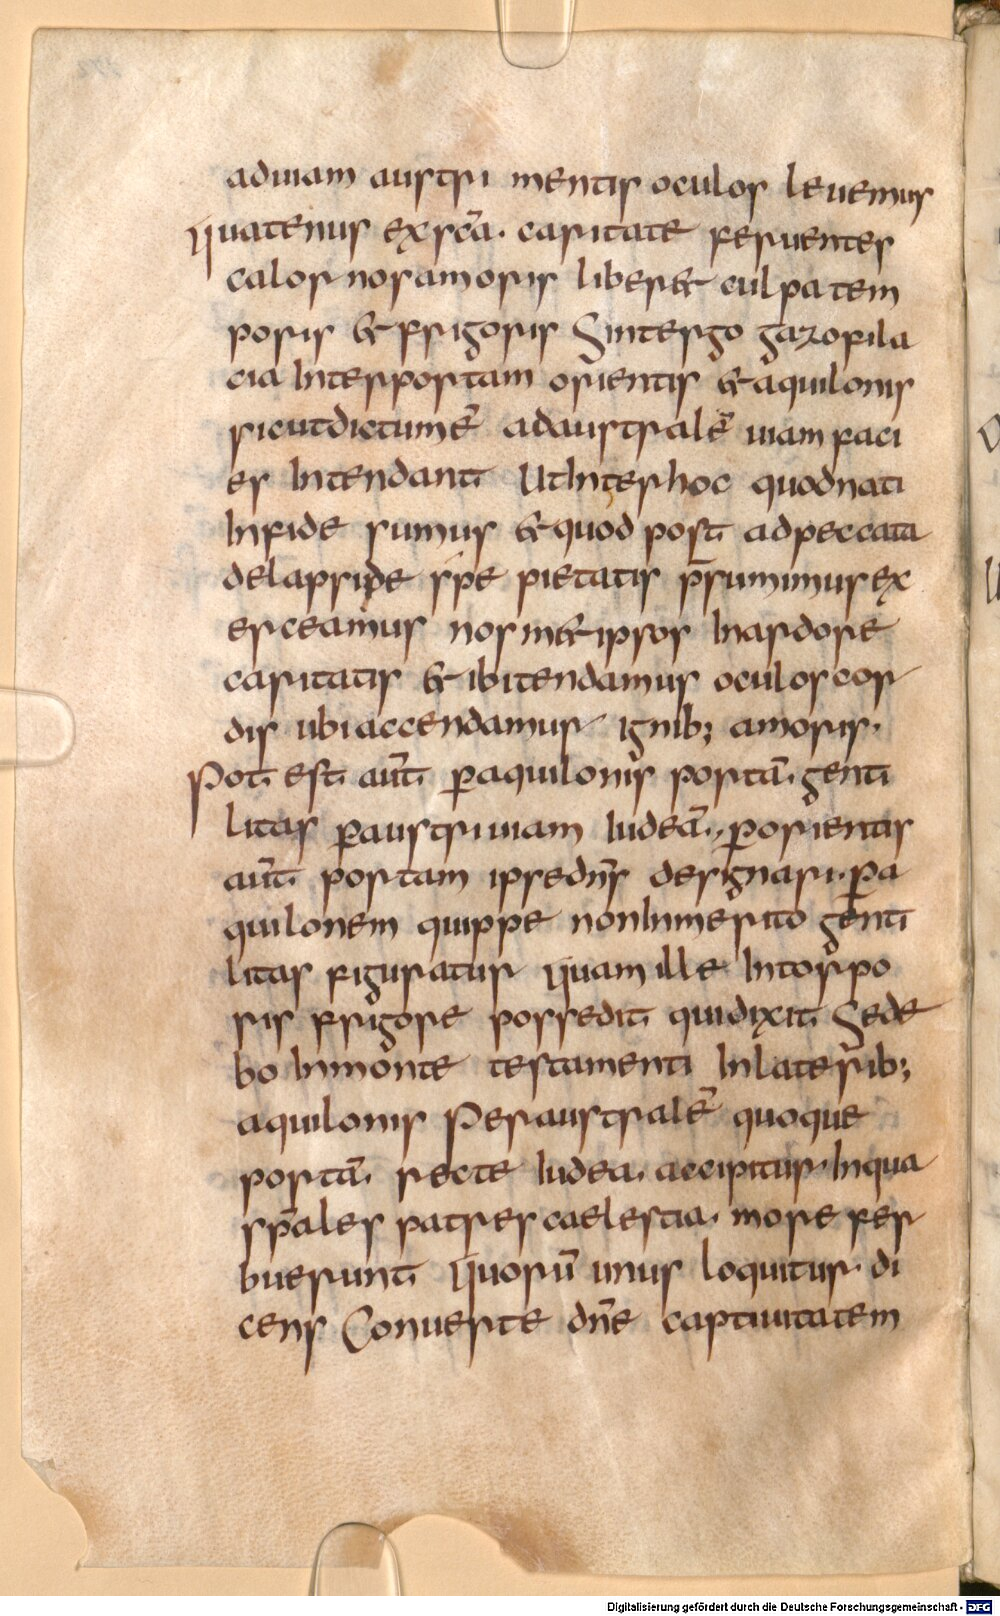 aduiam austri mentis oculos leuemus
Quatenus exscā. caritate feruentes
calor nos amoris liber& culpa tem
poris & frigoris Sint ergo gazofila
cia Inter portam orientis & aquilonis
sicut dictum ē adaustralē uiam faci
es Intendant Ut Inter hoc quod nati
Infide sumus & quod post adpeccata
delapside spe pietatis p̄sumimus ex
erceamus nosm&ipsos Inardore
caritatis & ibi tendamus oculos cor
dis ubi accendamur ignib; amoris.
Pot est aūt peraquilonis portā. genti
litas per austri uiam Iudeā., per orientis
aūt portam ipse dn̄s designari. per a
quilonem quippe non Inmerito genti
litas figuratur Quam ille Intorpo
ris frigore possedit qui dixit Sede
bo Inmonte testamenti Inlaterib;
aquilonis Per australē quoque
portā. recte Iudea. accipitur. Inqua
sp̄ales patres caelestia. more fer
buerunt Quorū unus loquitur. di
cens Conuerte dn̄e captiuitatem
Digitalisierung gefördert durch die Deutsche Forschungsgemeinschaft - DFG